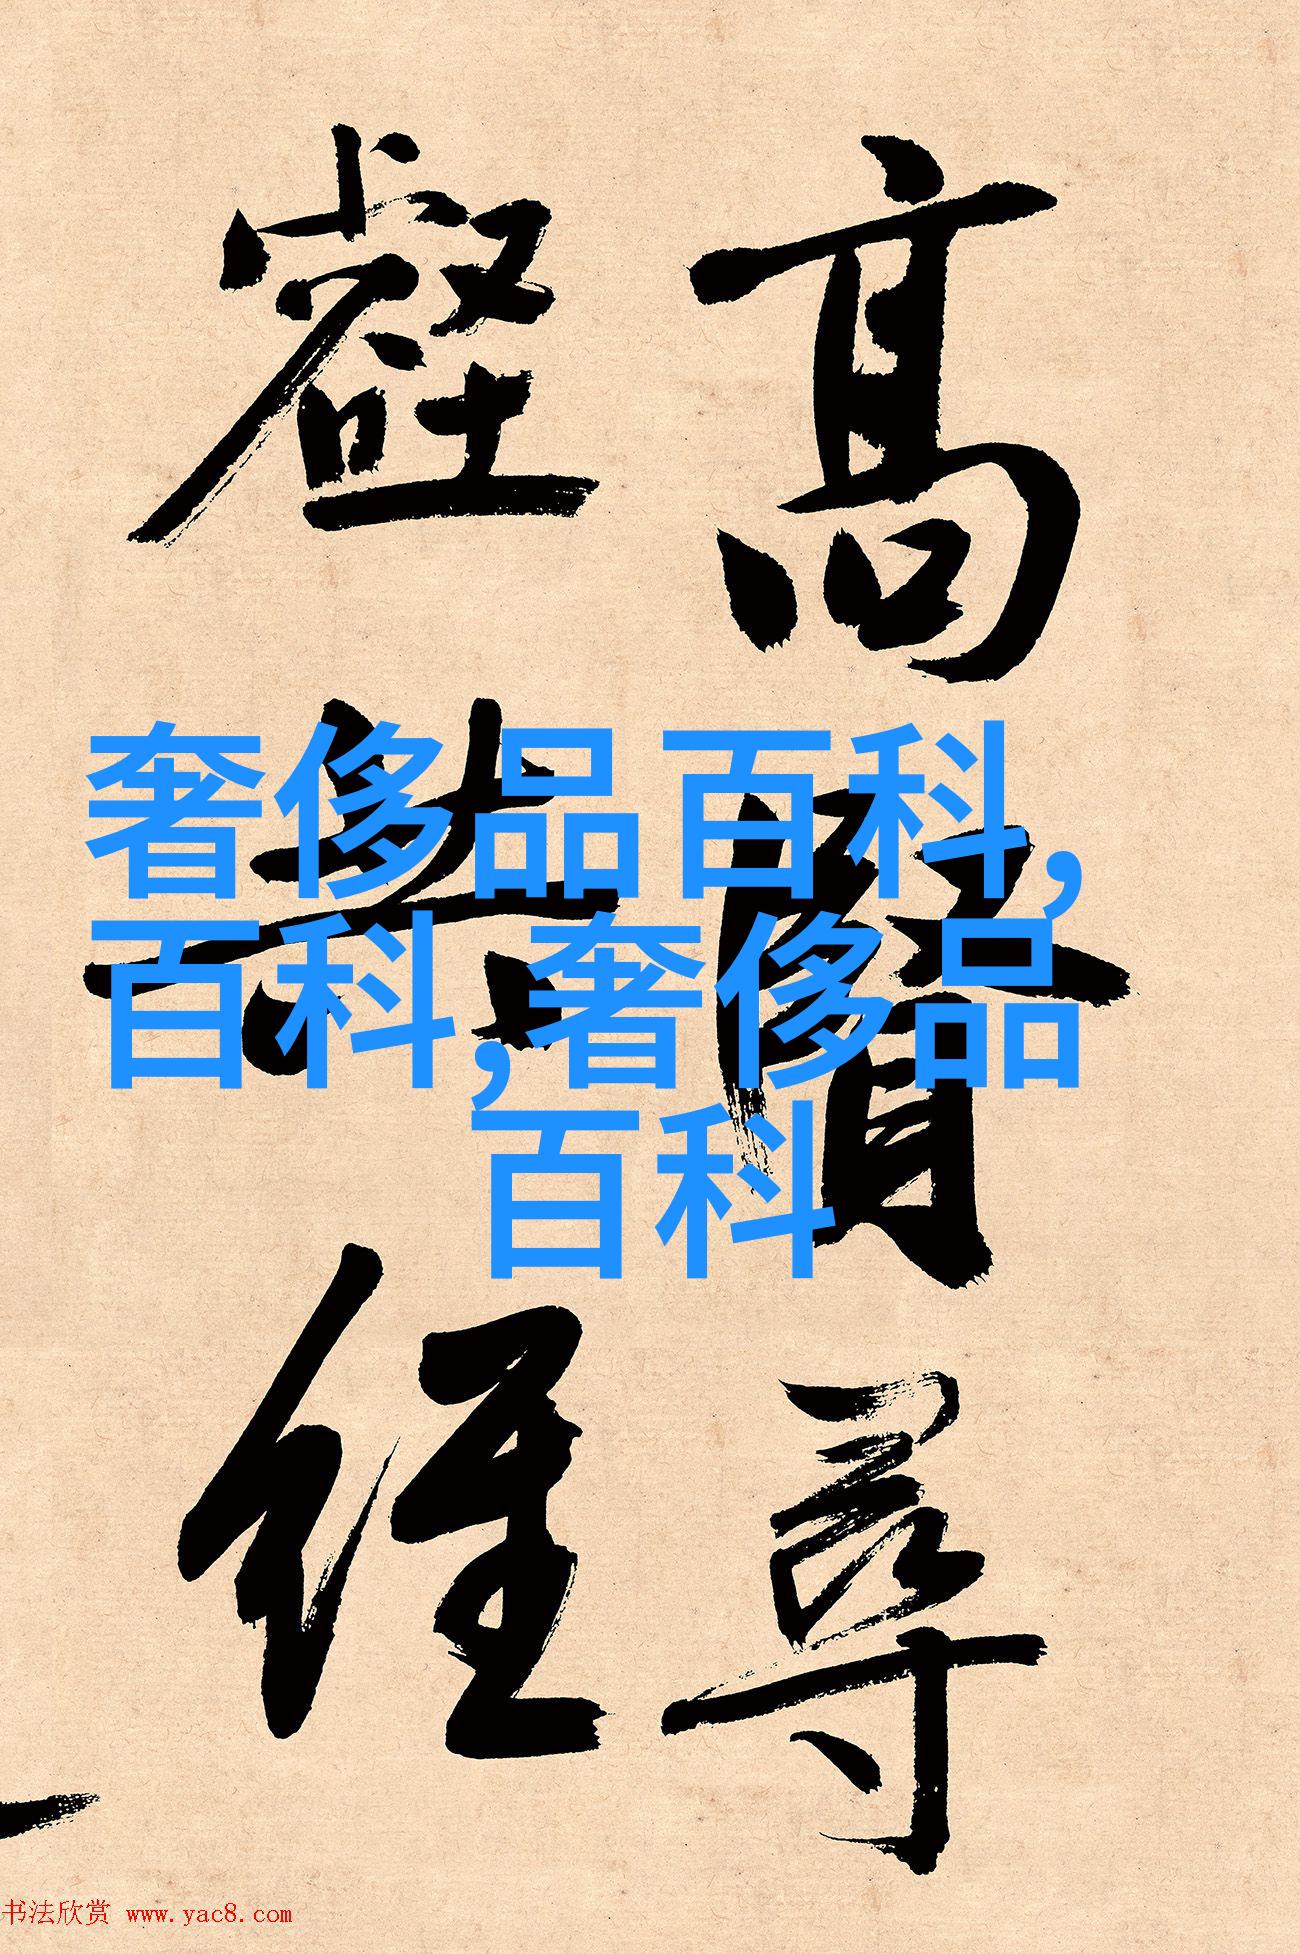 高賢尋
壑共經
奢侈品百科,
百科,奢侈品
百科
书法欣赏 www.yac8.com